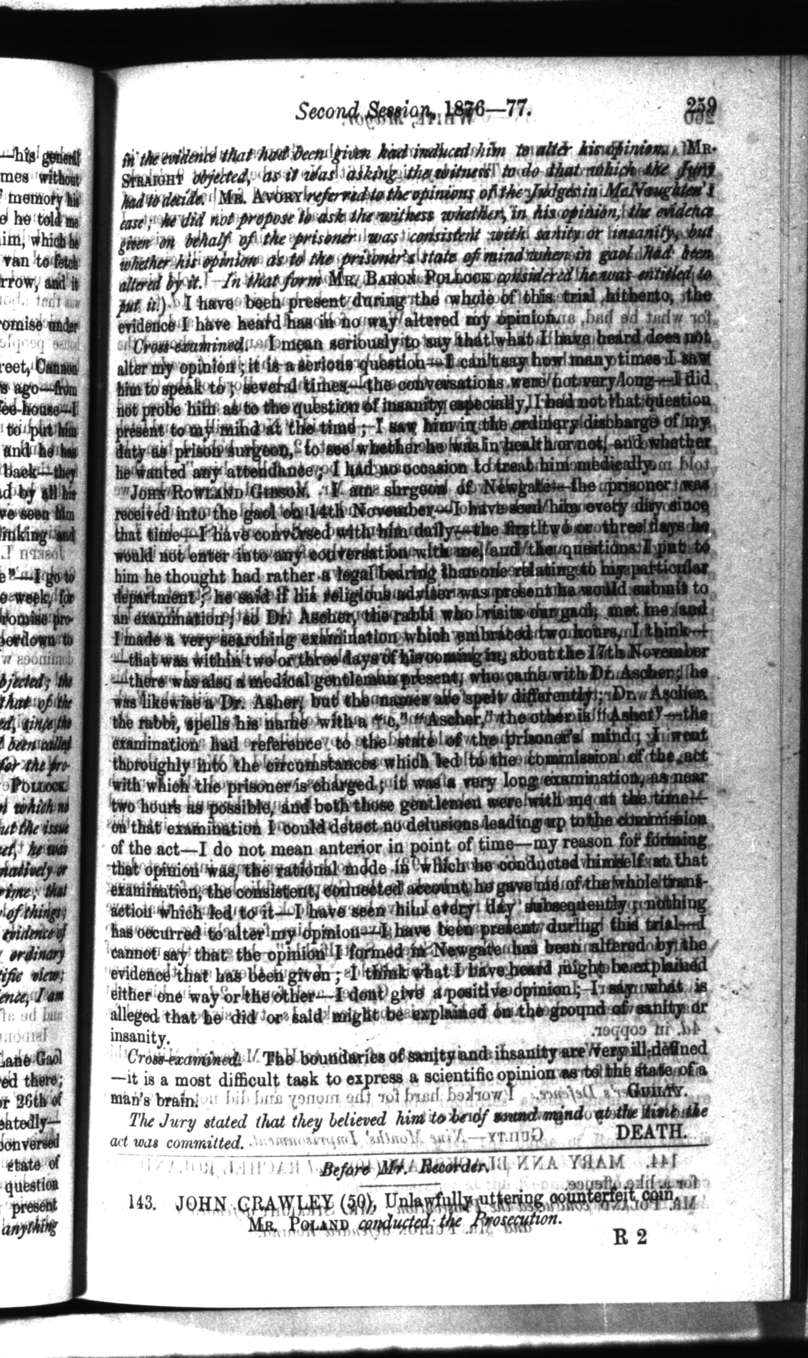 Second Session, 1876—77.
259
in the evidence that had been given had induced him to alter his opinion. MR.
STRAIGHT objected, as it was asking the witness to do that which the Jury
had to decide. MR. AVORY referred to the opinions of the Judges in McNaughten's
case; he did not propose to ask the witness whether, in his opinion, the evidence
given on behalf of the prisoner was consistent with sanity or insanity, but
whether his opinion as to the prisoner's state of mind when in gaol had been
altered by it. In that form MR. BARON POLLOCK considered he was entitled to
put it.) I have been present during the whole of this trial hitherto, the
evidence I have heard has in no way altered my opinion.
Cross-examined. I mean seriously to say that what I have heard does not
alter my opinion; it is a serious question—I can't say how many times I saw
him to speak to; several times—the conversations were not very long—I did
not probe him as to the question of insanity especially, I had not that question
present to my mind at the time; I saw him in the ordinary discharge of my
duty as prison surgeon, to see whether he was in health or not, and whether
he wanted any attendance; I had no occasion to treat him medically.
JOHN ROWLAND GIBSON. I am surgeon of Newgate—the prisoner was
received into the gaol on 14th November—I have seen him every day since
that time—I have conversed with him daily—the first two or three days he
would not enter into any conversation with me, and the questions I put to
him he thought had rather a legal bearing than one relating to my particular
department; he said if his religious adviser was present he would submit to
an examination; so Dr. Ascher, the rabbi who visits our gaol, met me and
I made a very searching examination which embraced two hours, I think
—that was within two or three days of his coming in, about the 17th November
—there was also a medical gentleman present, who came with Dr. Ascher; he
was likewise a Dr. Asher, but the names are spelt differently; Dr. Ascher,
the rabbi, spells his name with a "c," "Ascher," the other is "Asher"—the
examination had reference to the state of the prisoner's mind; I went
thoroughly into the circumstances which led to the commission of the act
with which the prisoner is charged; it was a very long examination, as near
two hours as possible, and both those gentlemen were with me at the time—
on that examination I could detect no delusions leading up to the commission
of the act—I do not mean anterior in point of time—my reason for forming
that opinion was, the rational mode in which he conducted himself at that
examination, the consistent, connected account he gave me of the whole trans-
action which led to it—I have seen him every day subsequently; nothing
has occurred to alter my opinion—I have been present during this trial—I
cannot say that the opinion I formed in Newgate has been altered by the
evidence that has been given; I think what I have heard might be explained
either one way or the other—I dont give a positive opinion; I say what is
alleged that he did or said might be explained on the ground of sanity or
insanity.
Cross-examined. The boundaries of sanity and insanity are very ill-defined
—it is a most difficult task to express a scientific opinion as to the state of a
man's brain.
GUILTY.
The Jury stated that they believed him to be of sound mind at the time the
act was committed.
DEATH.
Before Mr. Recorder.
143. JOHN CRAWLEY (50), Unlawfully uttering counterfeit coin.
MR. POLAND conducted the Prosecution.
R 2